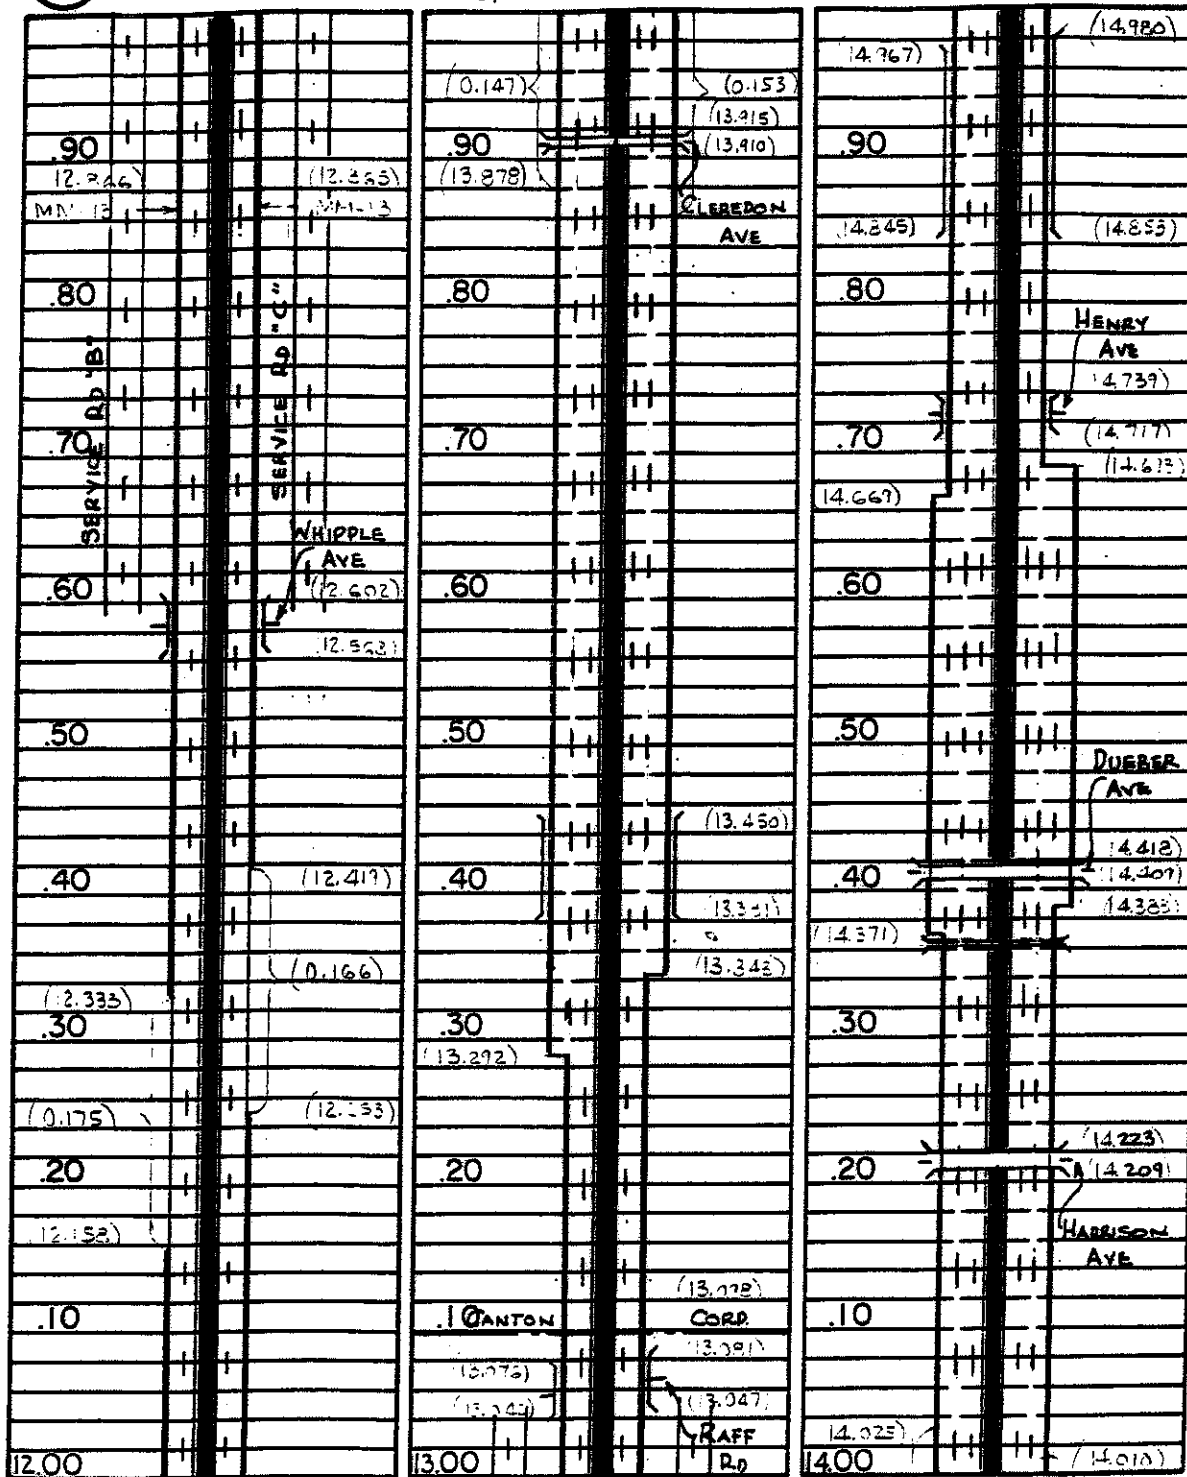 .90
MM-13
MM-13
.80
SERVICE RD "B"
SERVICE RD "C"
.70
WHIPPLE
AVE
.60
(12.602)
.50
.40
(12.417)
(0.166)
(12.333)
.30
(0.175)
.20
(12.158)
.10
12.00
(0.147)
(0.153)
(13.915)
.90
(13.910)
(13.878)
CLEREDON
AVE
.80
.70
.60
.50
(13.450)
.40
(13.343)
.30
(13.292)
.20
.10
CANTON CORP.
(13.047)
RAFF
RD
13.00
(14.980)
(14.967)
.90
(14.845)
(14.853)
.80
HENRY
AVE
(14.739)
.70
(14.717)
(14.667)
.60
.50
DUEBER
AVE
(14.418)
.40
(14.407)
(14.383)
(14.371)
.30
(14.223)
.20
(14.209)
HARRISON
AVE
.10
(14.025)
(14.010)
14.00